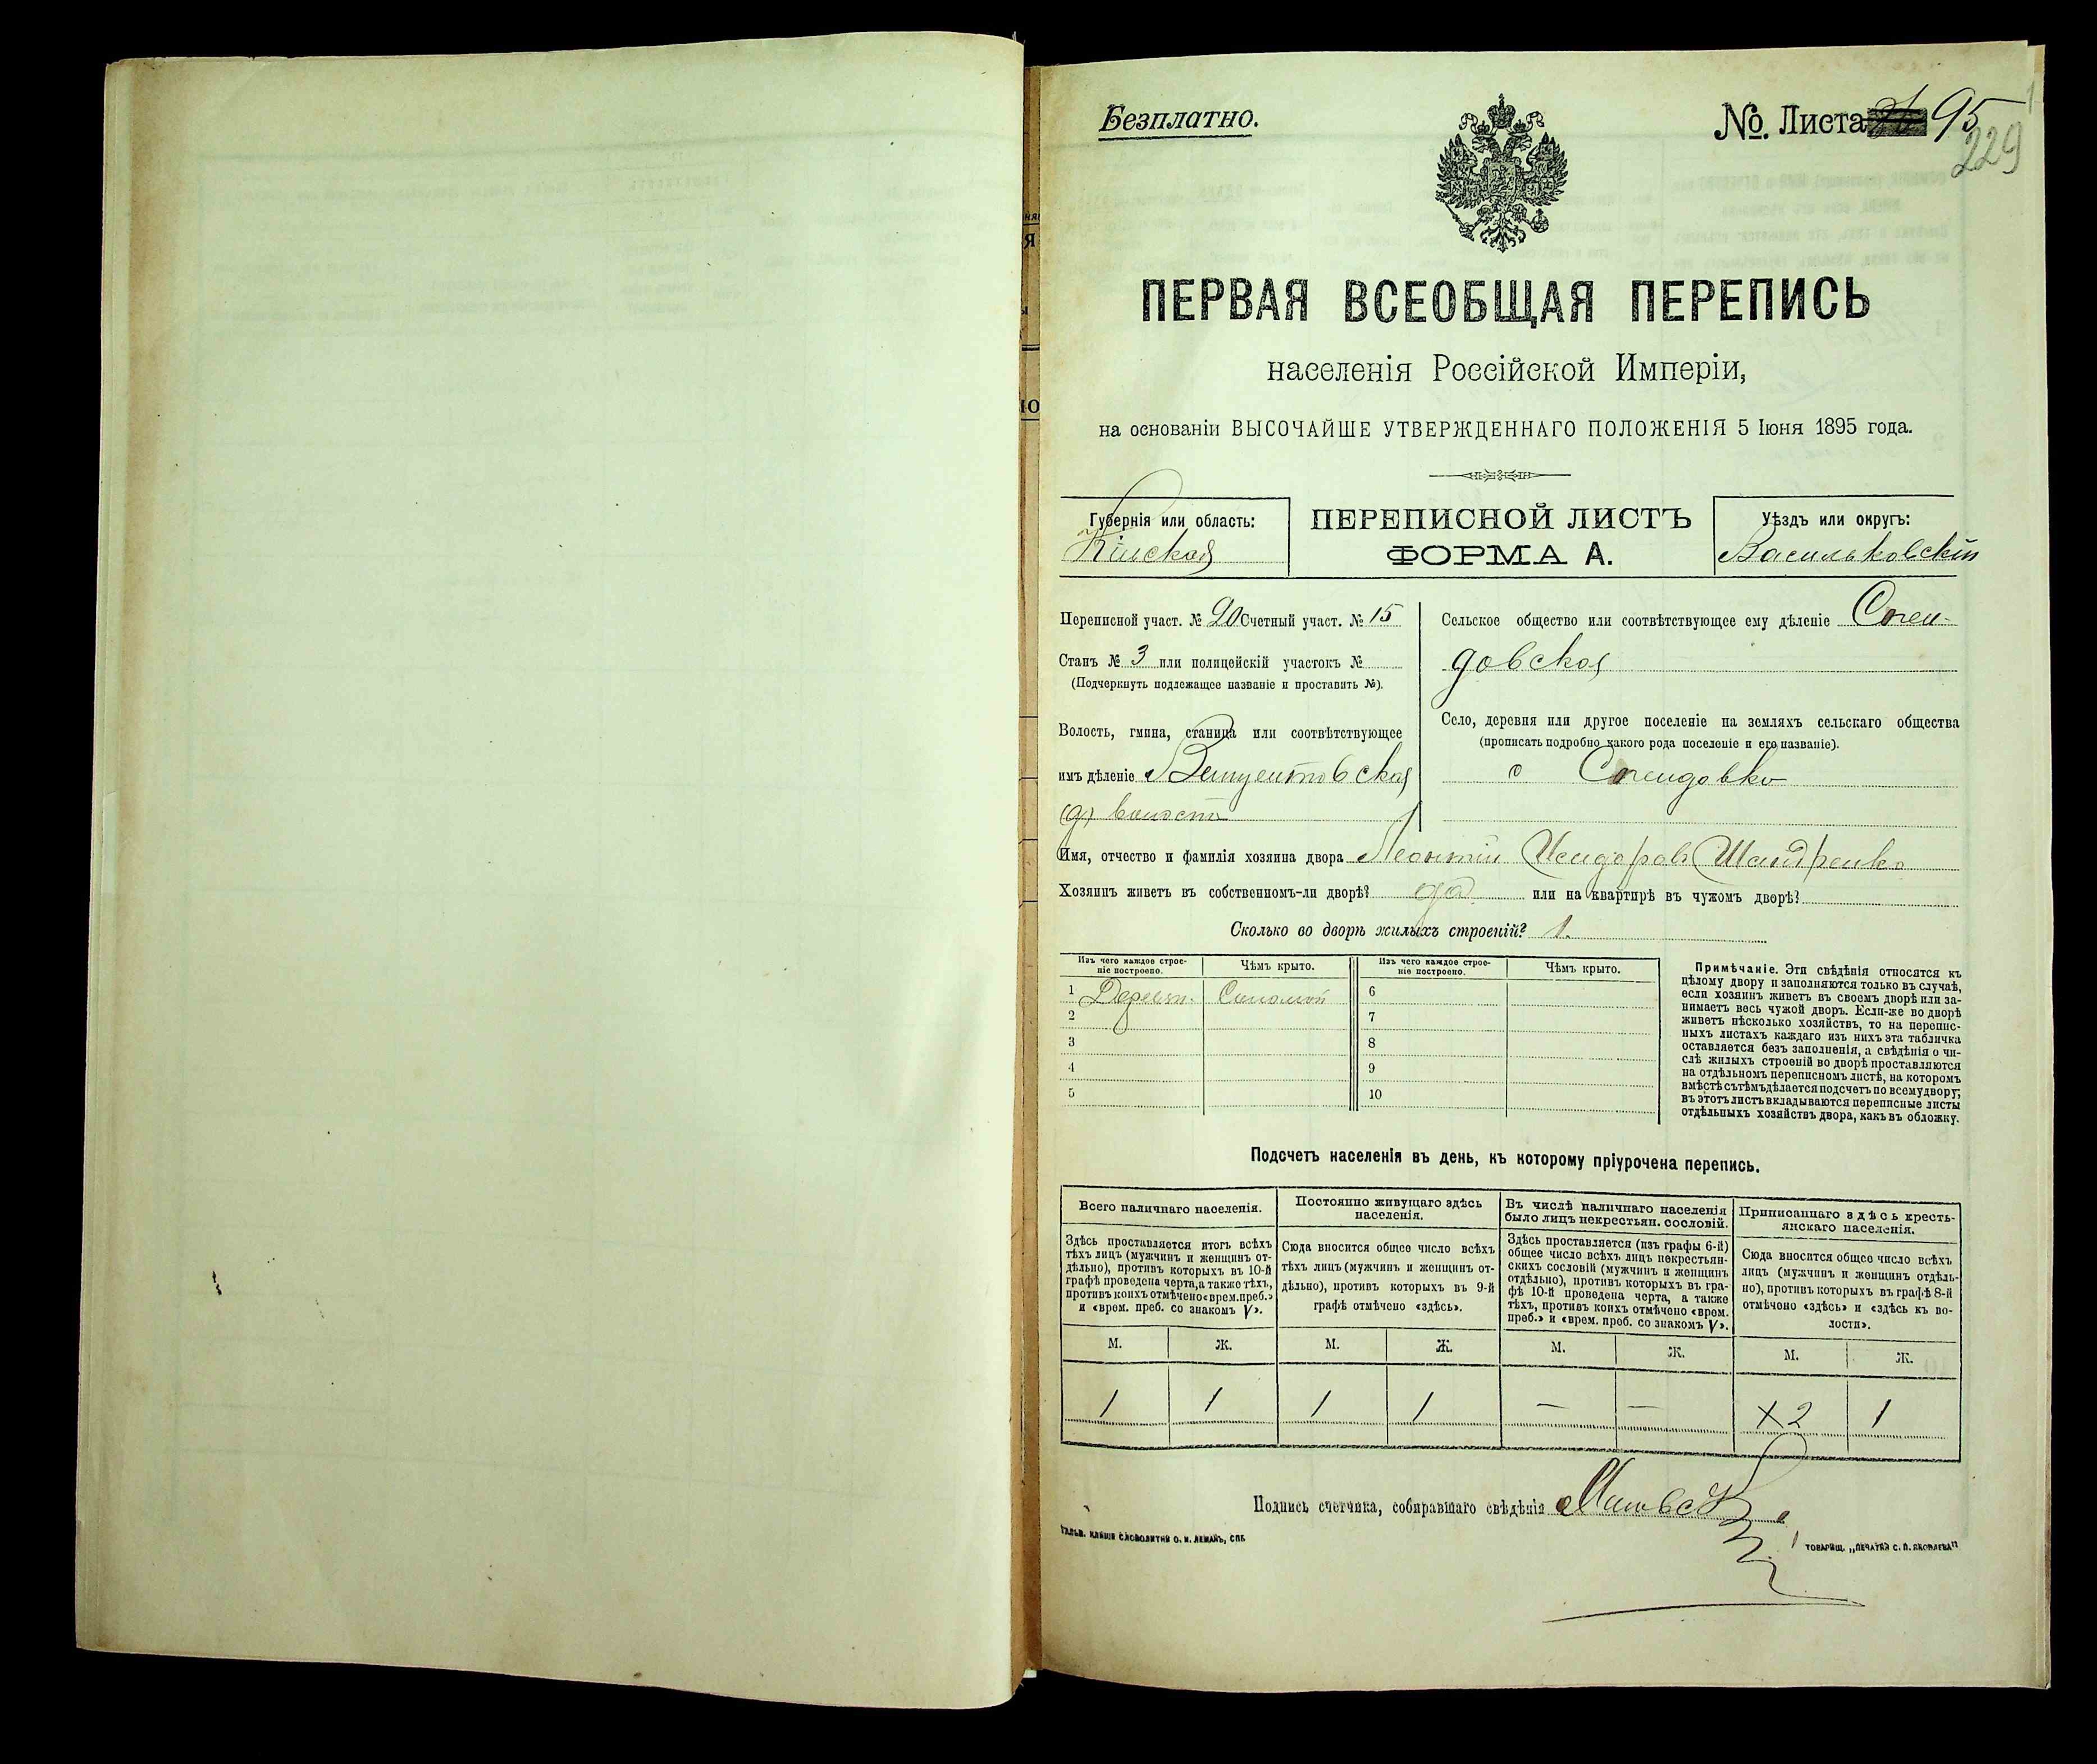 Безплатно.
№ Листа 95
229
ПЕРВАЯ ВСЕОБЩАЯ ПЕРЕПИСЬ
населенія Россійской Имперіи,
на основаніи ВЫСОЧАЙШЕ УТВЕРЖДЕННАГО ПОЛОЖЕНІЯ 5 Іюня 1895 года.
Губернія или область:
Кіевская
ПЕРЕПИСНОЙ ЛИСТЪ
ФОРМА А.
Уѣздъ или округъ:
Васильковскій
Переписной участ. № 20 Счетный участ. № 15
Станъ № 3 или полицейскій участокъ №
(Подчеркнуть подлежащее названіе и проставить №).
Волость, гмина, станица или соотвѣтствующее
имъ дѣленіе Винцентовская
волость
Сельское общество или соотвѣтствующее ему дѣленіе
довская
Село, деревня или другое поселеніе на земляхъ сельскаго общества
(прописать подробно какого рода поселеніе и его названіе).
с
Имя, отчество и фамилія хозяина двора Леонтій Исидоровъ Шандренко
Хозяинъ живетъ въ собственномъ-ли дворѣ? да или на квартирѣ въ чужомъ дворѣ?
Сколько во дворѣ жилыхъ строеній? 1.
Изъ чего каждое строе-
ніе построено.
Чѣмъ крыто.
Изъ чего каждое строе-
ніе построено.
Чѣмъ крыто.
1 Деревян. Соломой 6
2 7
3 8
4 9
5 10
Примѣчаніе. Эти свѣдѣнія относятся къ
цѣлому двору и заполняются только въ случаѣ,
если хозяинъ живетъ въ своемъ дворѣ или за-
нимаетъ весь чужой дворъ. Если-же во дворѣ
живетъ нѣсколько хозяйствъ, то на перепис-
ныхъ листахъ каждаго изъ нихъ эта табличка
оставляется безъ заполненія, а свѣдѣнія о чи-
слѣ жилыхъ строеній во дворѣ проставляются
на отдѣльномъ переписномъ листѣ, на которомъ
вмѣстѣ съ тѣмъ дѣлается подсчетъ по всему двору;
въ этотъ листъ вкладываются переписные листы
отдѣльныхъ хозяйствъ двора, какъ въ обложку.
Подсчетъ населенія въ день, къ которому пріурочена перепись.
Всего наличнаго населенія.
Здѣсь проставляется итогъ всѣхъ
тѣхъ лицъ (мужчинъ и женщинъ от-
дѣльно), противъ которыхъ въ 10-й
графѣ проведена черта, а также тѣхъ,
противъ коихъ отмѣчено «врем. преб.»
и «врем. преб. со знакомъ V».
Постоянно живущаго здѣсь
населенія.
Сюда вносится общее число всѣхъ
тѣхъ лицъ (мужчинъ и женщинъ от-
дѣльно), противъ которыхъ въ 9-й
графѣ отмѣчено «здѣсь».
Въ числѣ наличнаго населенія
было лицъ некрестьян. сословій.
Здѣсь проставляется (изъ графы 6-й)
общее число всѣхъ лицъ некрестьян-
скихъ сословій (мужчинъ и женщинъ
отдѣльно), противъ которыхъ въ гра-
фѣ 10-й проведена черта, а также
тѣхъ, противъ коихъ отмѣчено «врем.
преб.» и «врем. преб. со знакомъ V».
Приписаннаго здѣсь кресть-
янскаго населенія.
Сюда вносится общее число всѣхъ
лицъ (мужчинъ и женщинъ отдѣль-
но), противъ которыхъ въ графѣ 8-й
отмѣчено «здѣсь» и «здѣсь къ во-
лости».
М. Ж. М. Ж. М. Ж. М. Ж.
1 1 1 1 — — 2 1
Подпись счетчика, собиравшаго свѣдѣнія
ТОВАРИЩ. „ПЕЧАТНЯ С. П. ЯКОВЛЕВА"